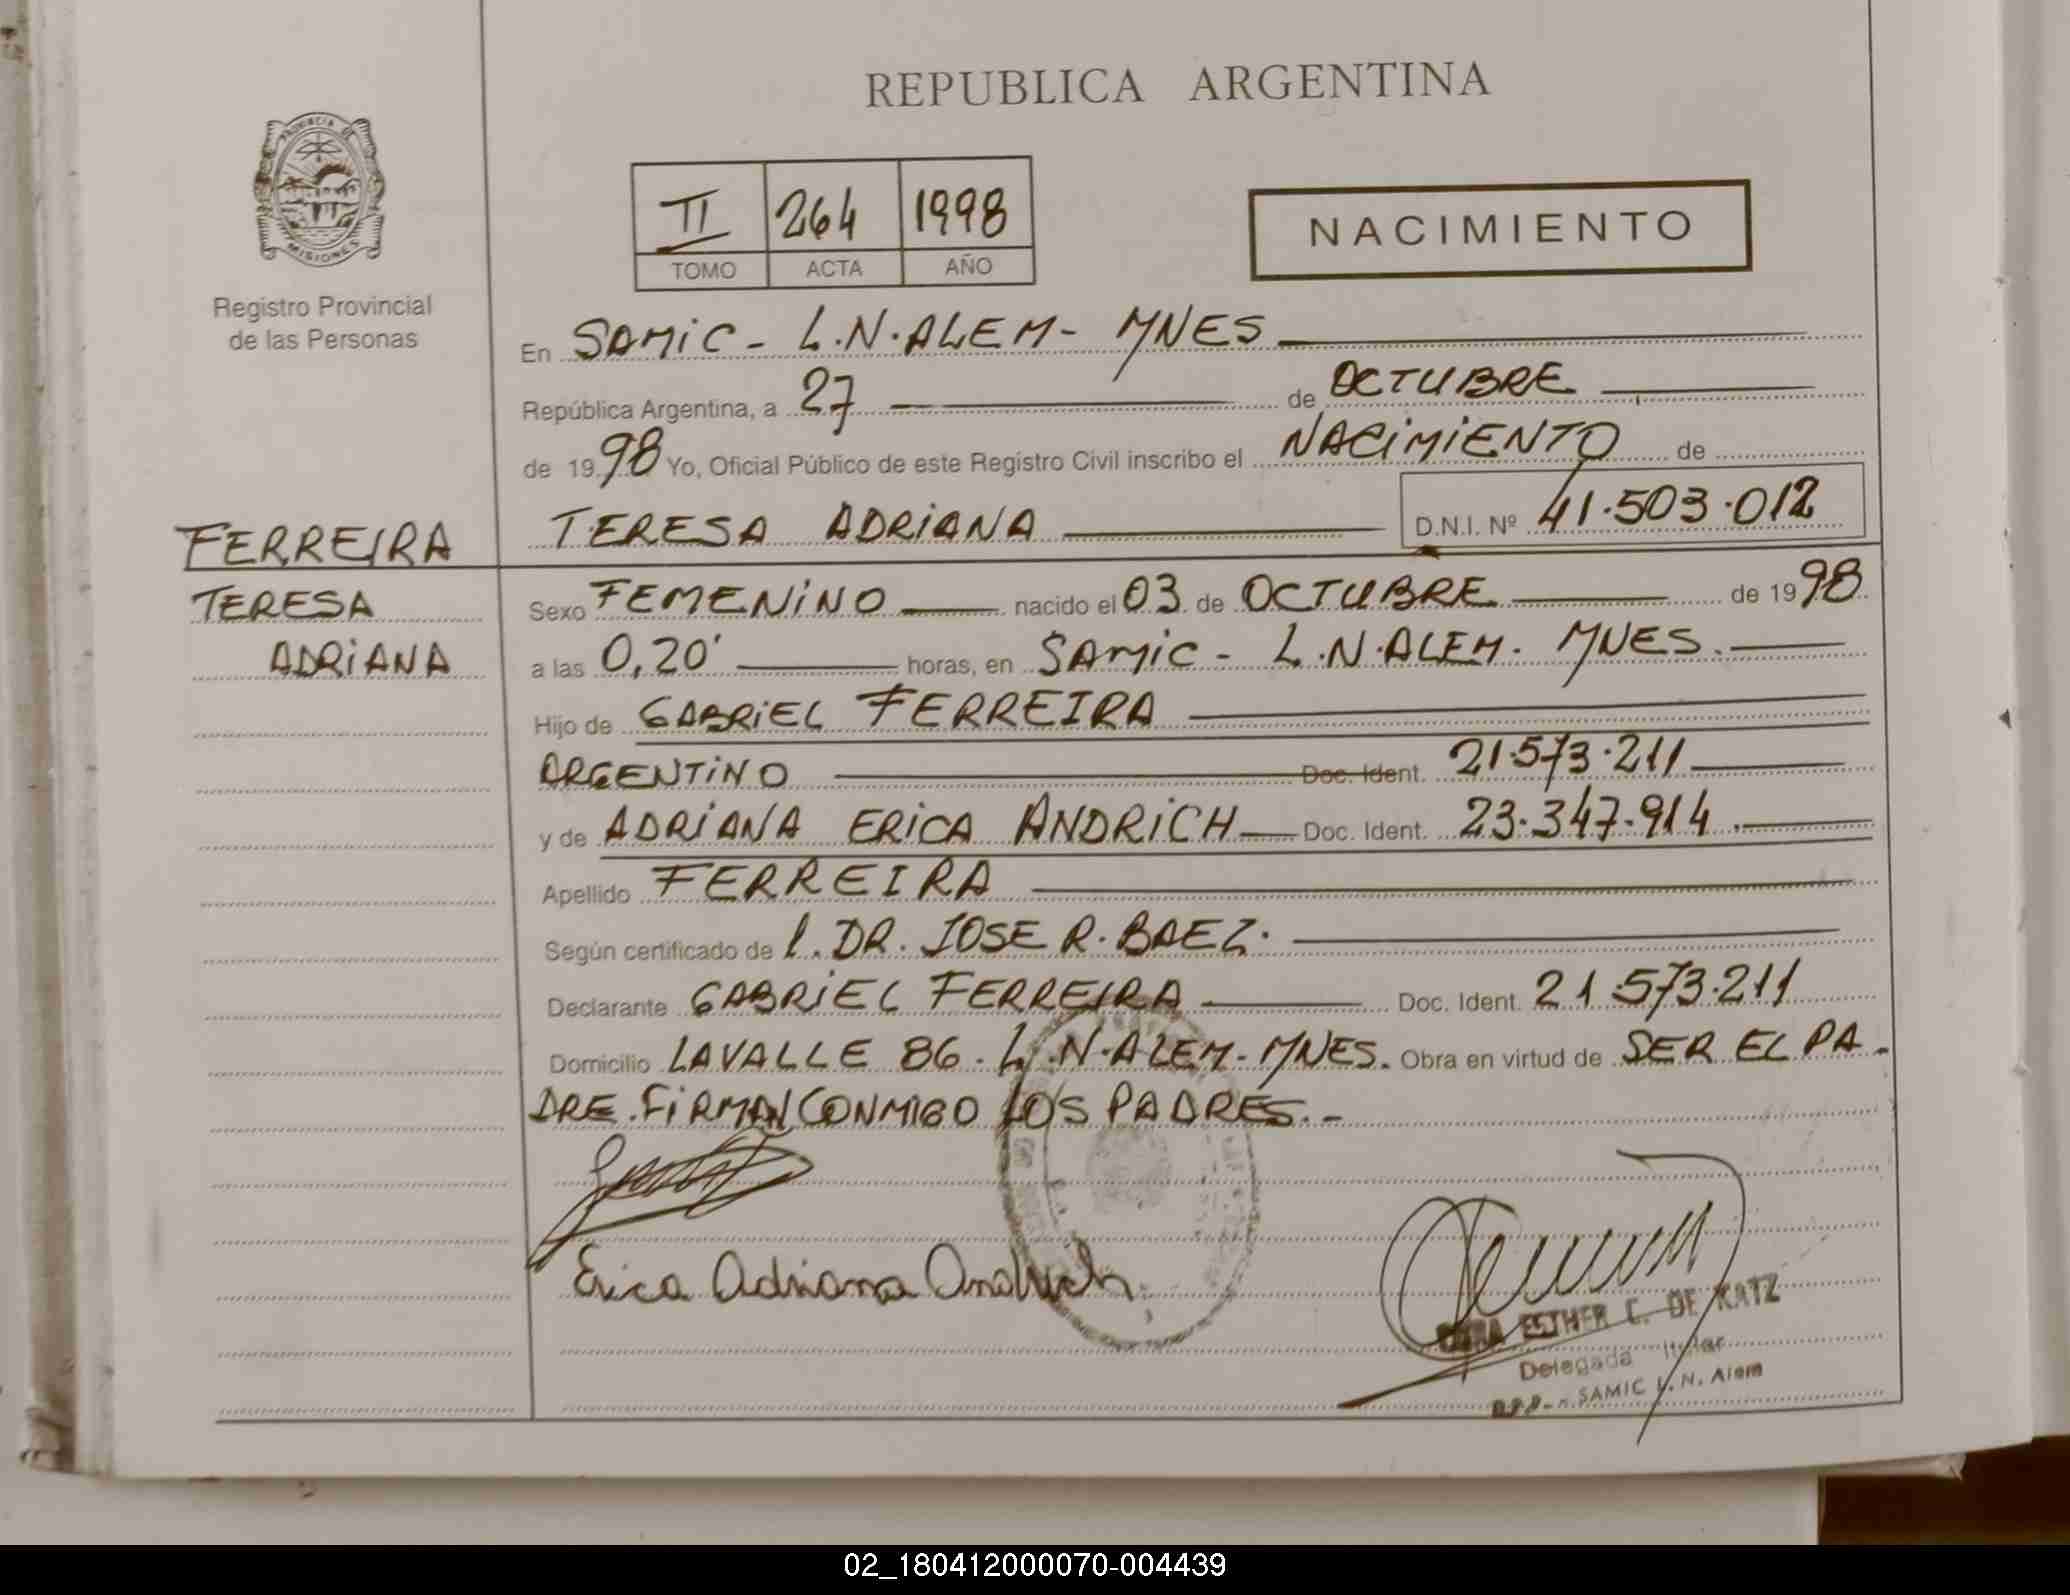 REPUBLICA ARGENTINA
PROVINCIA DE
MISIONES
Registro Provincial
de las Personas
II 264 1998
TOMO ACTA AÑO
NACIMIENTO
En SAMIC - L.N. ALEM - MNES
República Argentina, a 27 de OCTUBRE
de 1998 Yo, Oficial Público de este Registro Civil inscribo el NACIMIENTO de
TERESA ADRIANA D.N.I. Nº 41.503.012
FERREIRA
TERESA
ADRIANA
Sexo FEMENINO nacido el 03 de OCTUBRE de 1998
a las 0,20' horas, en SAMIC - L.N. ALEM. MNES.
Hijo de GABRIEL FERREIRA
ARGENTINO Doc. Ident. 21.573.211
y de ADRIANA ERICA ANDRICH Doc. Ident. 23.347.914.
Apellido FERREIRA
Según certificado de l. DR. JOSE R. BAEZ.
Declarante GABRIEL FERREIRA Doc. Ident. 21.573.211
Domicilio LAVALLE 86. L.N. ALEM - MNES. Obra en virtud de SER EL PA-
DRE. FIRMAN CONMIGO LOS PADRES.-
Erica Adriana Andrich
ESTHER C. DE KATZ
Delegada Titular
SAMIC L. N. Alem
02_180412000070-004439